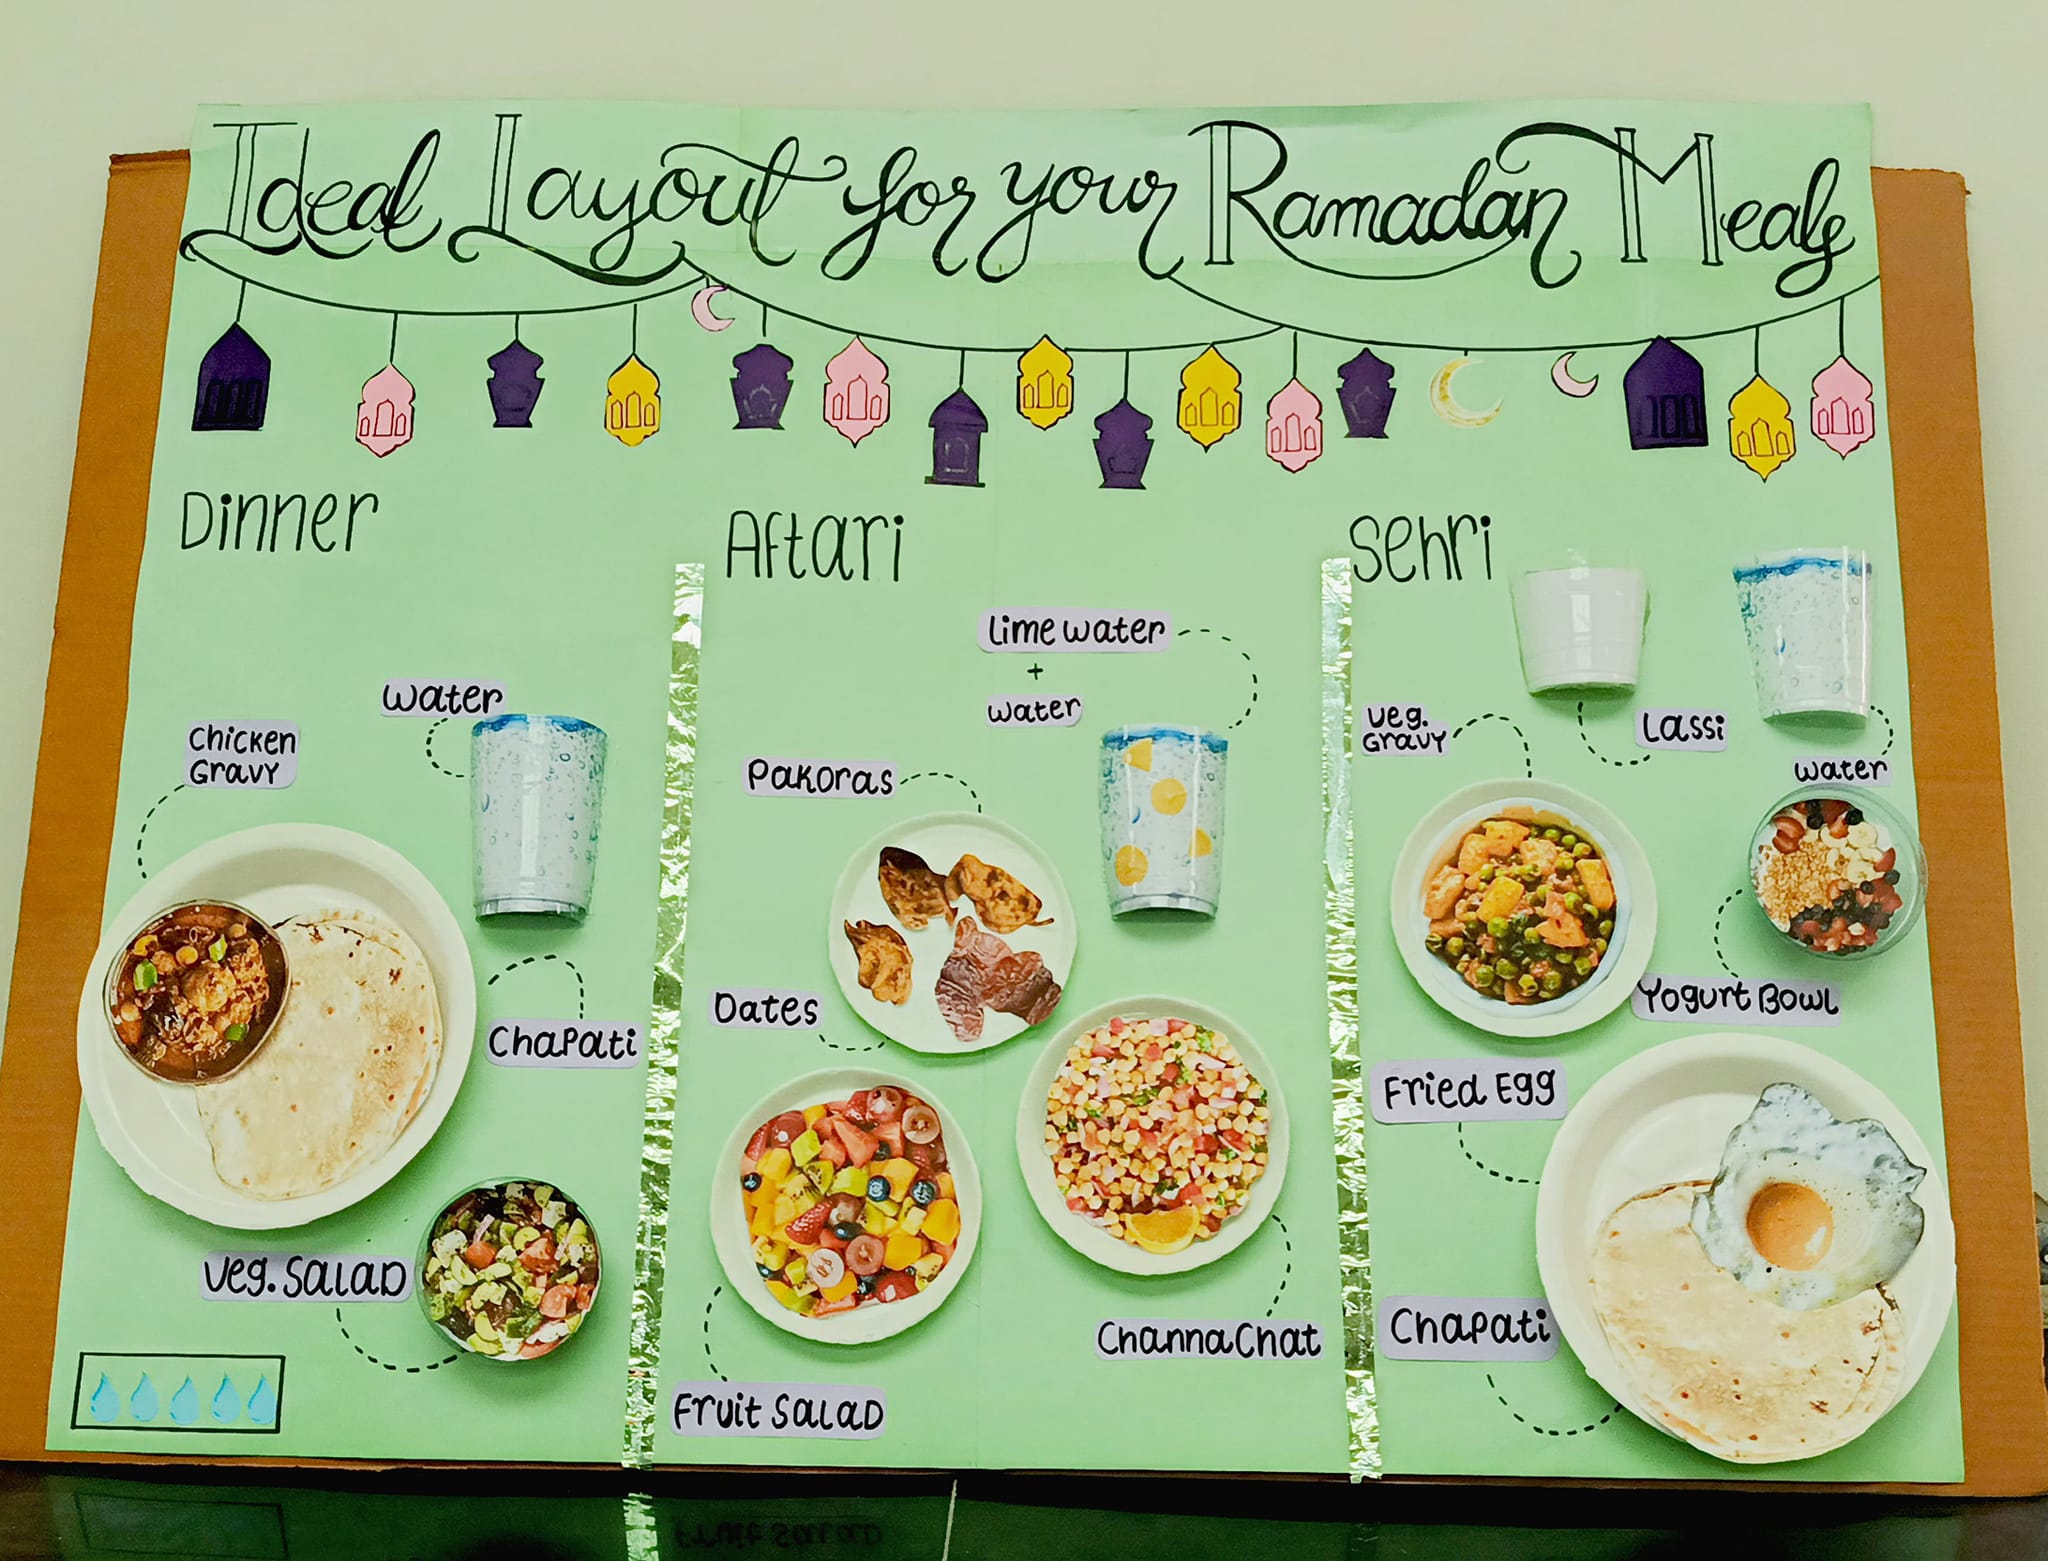 Ideal Layout for your Ramadan Meals
Dinner
Water
Chicken
Gravy
Chapati
Veg. Salad
Aftari
Lime water
+
Water
Pakoras
Dates
Channa Chat
Fruit Salad
Sehri
Veg.
Gravy
Lassi
Water
Yogurt Bowl
Fried Egg
Chapati